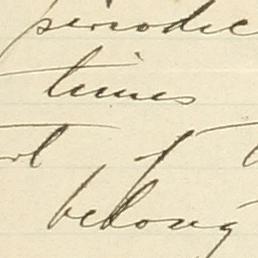 periodic
times
of
belong